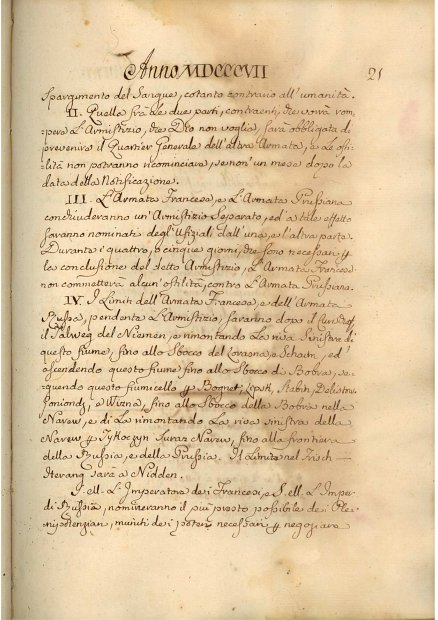 Anno MDCCCVII
21
Spargimento del Sangue, cotanto contrario all'umanità.
II. Quella frà le due parti, contraenti, che vorrà rom,,
pere L'Armistizio, che Dio non voglia, sarà obbligata di
prevenire il Quartier Generale dell'altra Armata, e le osti,,
lità non potranno ricominciare, se non un mese dopo la
data della Notificazione.
III. L'Armata Francese, e L'Armata Prussiana
condiuderanno un'Armistizio Separato, ed a tale effetto
saranno nominati degli Uffiziali dall'una, e l'altra parte.
Durante i quattro, o cinque giorni, che sono necessari p
la conclusione del detto Armistizio, L'Armata Francese
non commetterà alcun'ostilità, contro L'Armata Prussiana.
IV. I Limiti dell'Armata Francese, e dell'Armata
Russa, pendente L'Armistizio, saranno dopo il
il Talweg del Niemen, e rimontando La riva Sinistra di
questo fiume, fino allo Sbocco del e Schain, ed
ascendendo questo fiume fino allo Sbocco di Bobra, se,,
guendo questo fiumicello p Bognet, Lipsk, Habin, Dolistno,
Goniondz, e Wizna, fino allo Sbocco della Bobra nella
Narew, e di La rimontando La riva sinistra della
Narew p Tykoczyn Suraz Narew, fino alla frontiera
della Russia, e della Prussia. Il Limite nel Frisch
Nerung sarà a Nidden.
S. ell. L'Imperatore dei Francesi, e S. ell. L'Imper
di Russia, nomineranno il più presto possibile dei Ple,,
nipotenziari, muniti dei poteri necessari p negoziare